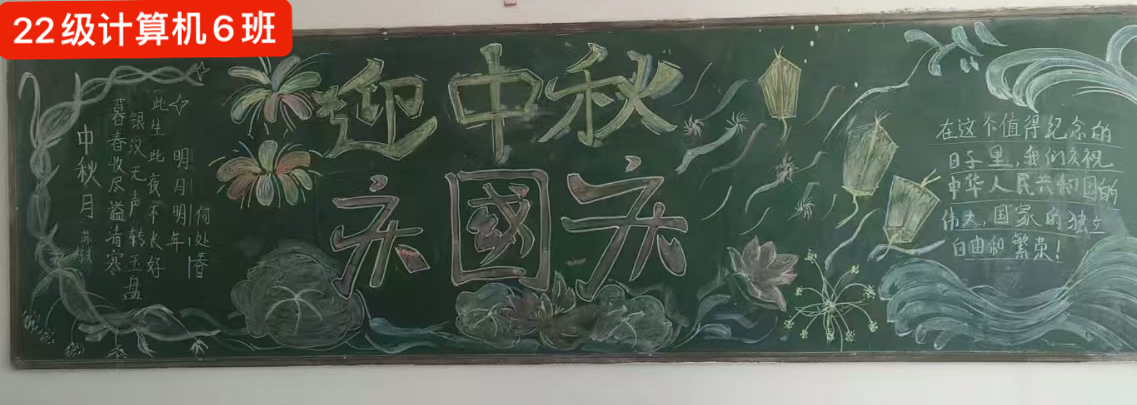 22级计算机6班
迎中秋
庆國庆
中秋月 苏轼
暮春收尽溢清寒
银汉无声转玉盘
此生此夜不长好
明月明年
何处春
在这个值得纪念的
日子里,我们庆祝
中华人民共和国的
伟大,国家的独立
自由和繁荣!